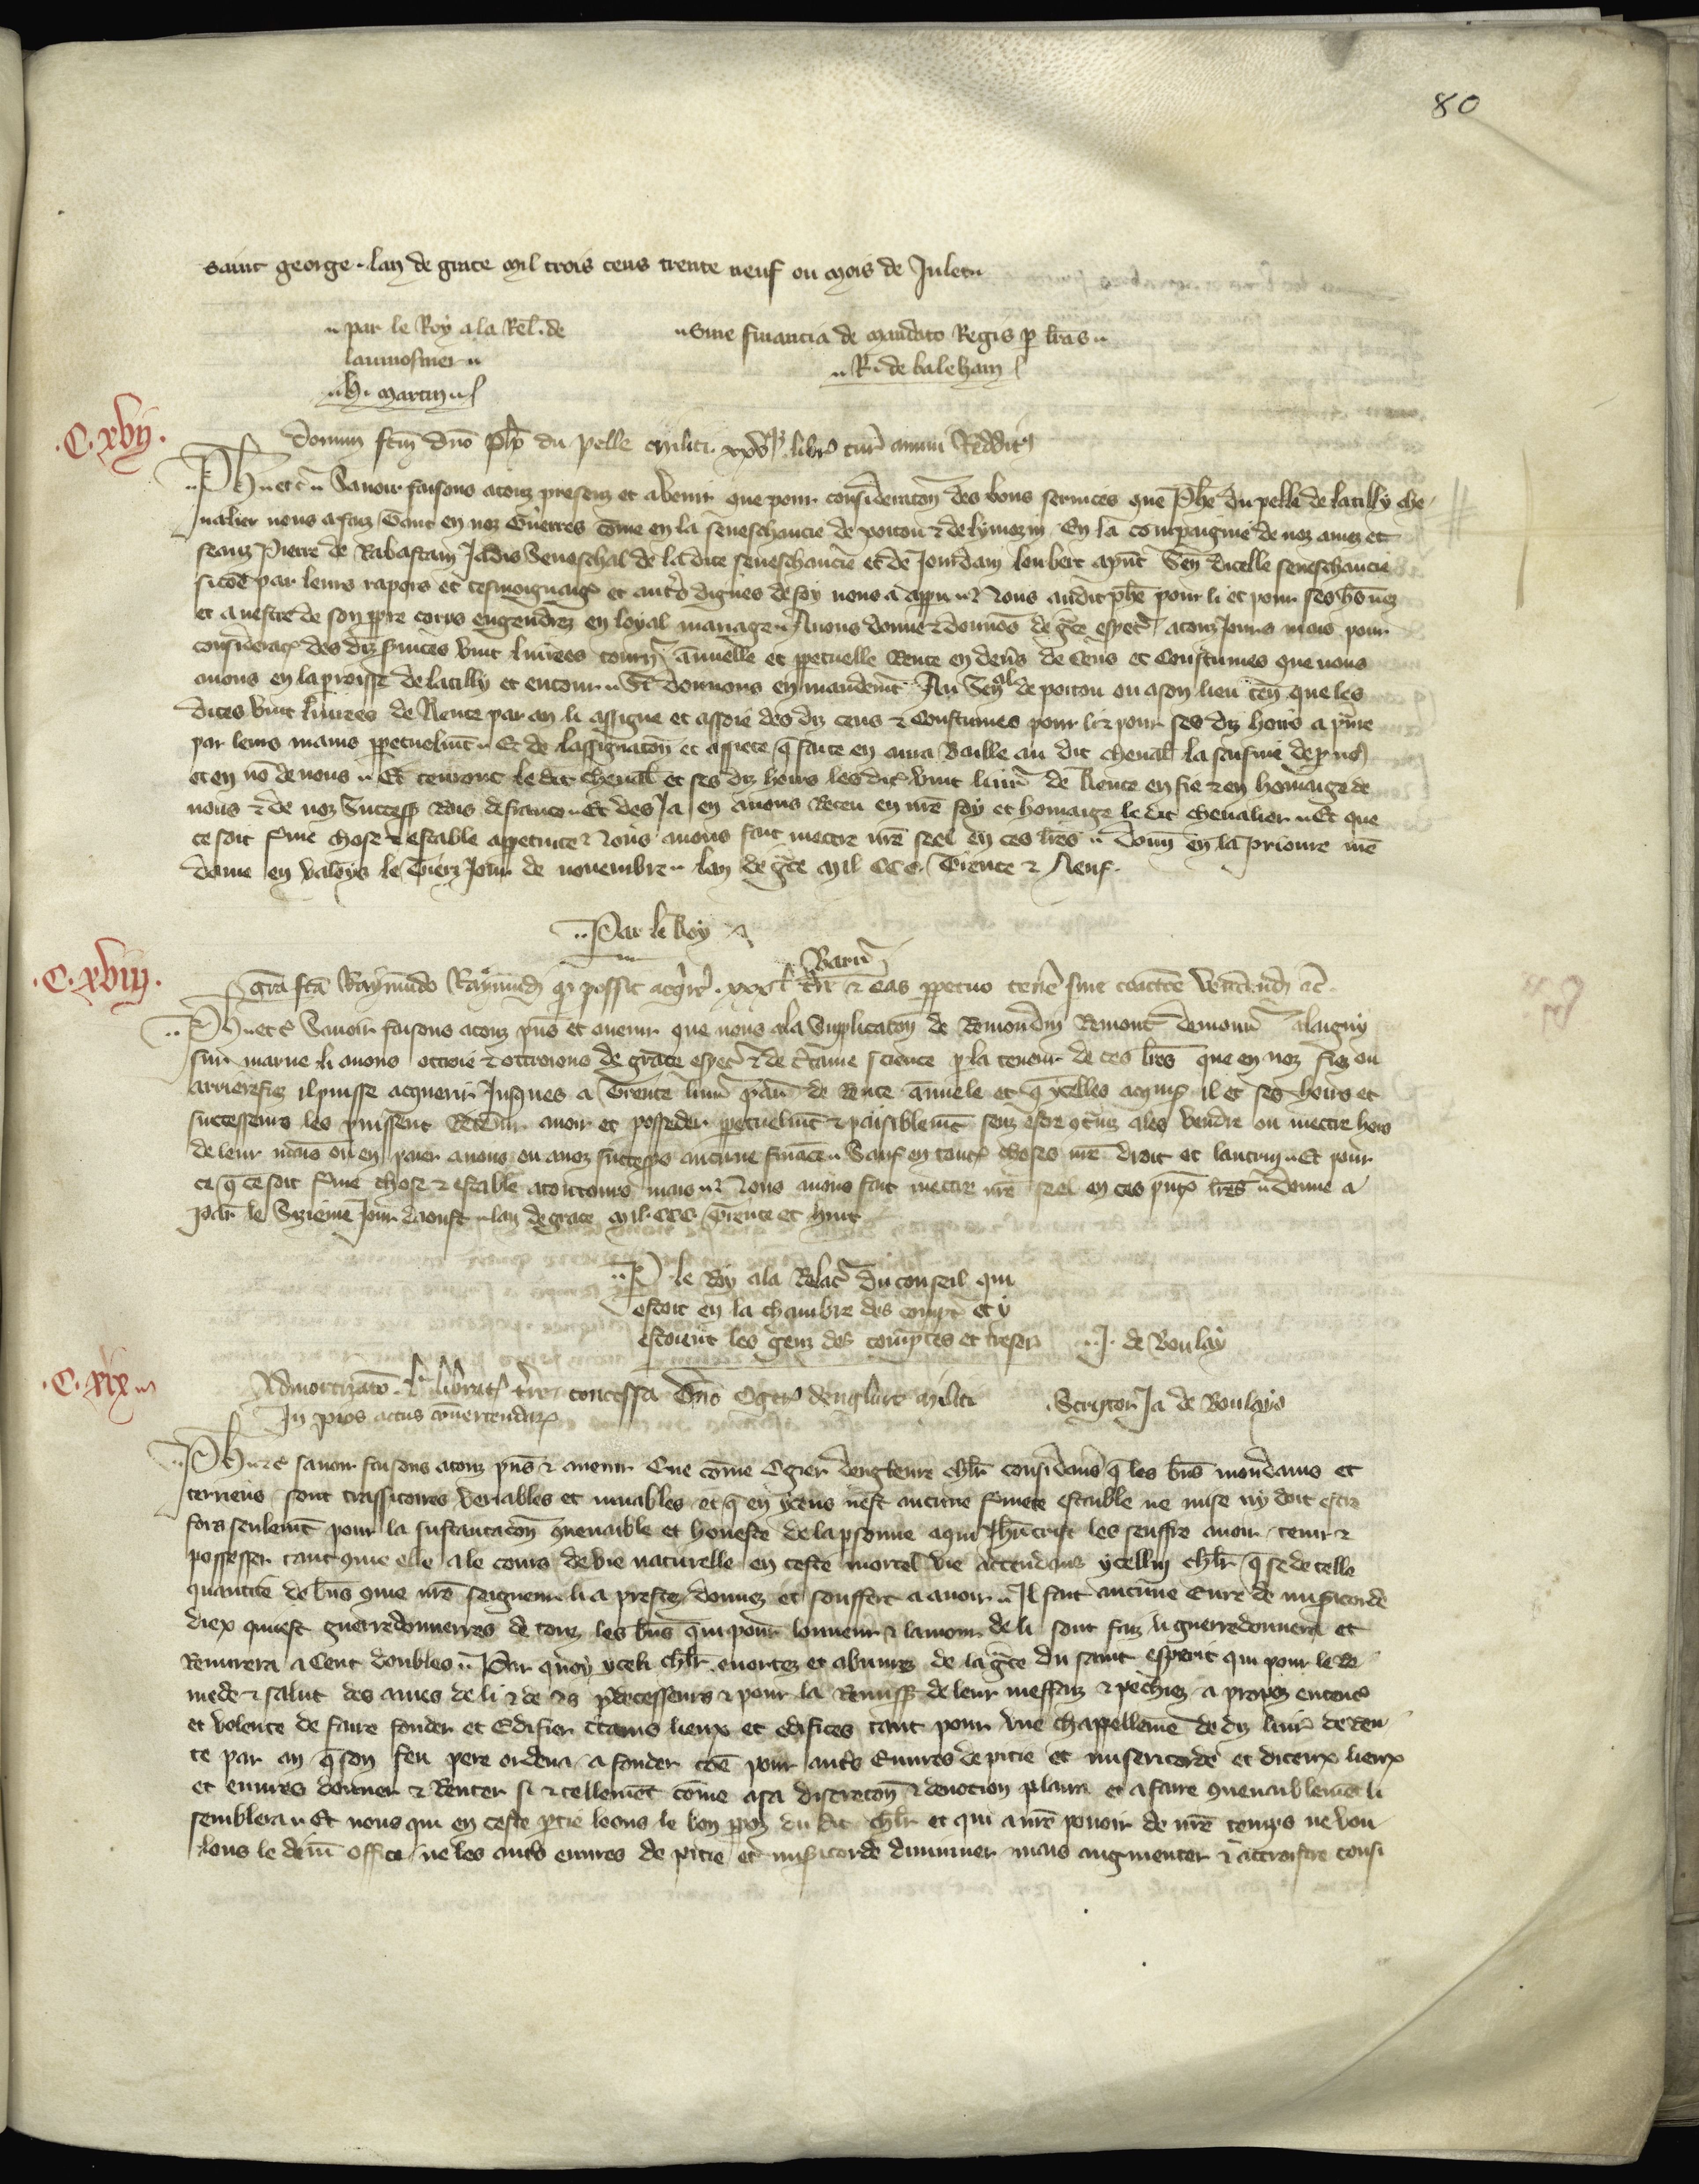 80
saint george. lan de grace mil trois cens trente neuf ou mois de Julet
par le Roy a la Rel. de
laumosnier
H. martin
Sine financia de mandato Regis p lras
R. de baleham
.C.xvij.
donum fcm dno Pho du pelle militi. libr tur annui Redditus
Ph etc Savoir faisons a touz presenz et avenir que pour consideracon des bons services que Phe du pelle de latilly che
valier nous a faiz tant en noz Guerres come en la seneschaucie de poitou & de lymozin En la compaignie de noz amez et
feauz Pierre de Rabastain Jadis Seneschal de la dite seneschaucie et de Jourdain loubert apnt Sen dicelle seneschaucie
sicoe par leurs rapors et tesmoignaige et autrs dignes de foy nous a appru Nous audit phe pour li et pour ses hrs nez
et a nestre de son ppre corps engendrez en loyal mariage Avons donne & donnons de gce espec a touz Jours mais pour
consideracon des diz svices vint livrees tourn annuelle et ppetuelle Rente en denrs de Cens et Coustumes que nous
avons en la proisse de latilly et entour Si donnons en mandemt Au Senal de poitou ou a son lieu ten que les
dites vint livrees de Rente par an li assigne et assoie des diz cens & Coustumes pour li & pour ses diz hoirs a pnre
par leurs mains ppetuelmt Et de lassignacon et assiete q faite en aura Baille au dit chevalr la saisine de p nos
et en no de nous Et tenront le dit chevalr et ses diz hoirs les dites vint livr de Rente en fie & en homaige de
nous & de noz Success Rois de france Et des Ja en avons Receu en nre foy et homaige le dit chevalier Et que
ce soit fme chose & estable a ppetuite Nous avons fait mectre nre seel en ces lres donn en la prioure nre
dame en valoys le Tierz Jour de novembre lan de gce mil CCC. Trente & Neuf.
Par le Roy
.C.xviij.
Parn
Gra fca Raymundo Raymundi q possit acqr xxx l tr & eas ppetuo tene sine coactoe
Ph etc Savoir faisons a touz pns et avenir que nous a la Supplicacon de Remondin Remont demour a laigny
sur marne li avons ottroie & ottroions de grace espec & de ctaine science p la teneur de ces lres que en noz fiez ou
arrierefiez il puisse acquerir Jusques a Trente livr par de Rente annuele et q ycelles acquis il et ses hoirs et
successeurs les puissent Retenir avoir et posseder ppetuelmt & paisiblemt senz estre contrains a les vendre ou mectre hors
de leur mains ou en paier a nous ou a noz successrs aucune finance Sauf en toutes choses nre droit et lautruy Et pour
ce q ce soit fme chose & estable a touz Jours mais Nous avons fait mectre nre seel en ces pntes lres donne a
Par le Sizieme Jour daoust lan de grace mil CCC. Trente et huit
P le Roy a la Relac du conseil qui
estoit en la chambre des comptes et y
estoient les genz des comptes et tresor
J. de Boulay
.C.xix
Admortizaco libratarum tre concessa dno Ogero denglure militi
In pios actus convertendarum
Scriptor Ja de Boulayo
Ph etc savoir faisons a touz pns & avenir Que come Ogier dengleure chlr considerans q les bns mondains et
terriens sont transsitoires veriables et muables et q en yceus nest aucune fmete estable ne mise ny doit estre
fors seulemt pour la sustantacon convenable et honeste de la psonne a qui Jhucrist les seuffre avoir tenir &
possesser tant come elle a le cours de vie naturelle en ceste mortel vie Attendans ycelluy chlr q se de telle
quantite de bns come nre seigneur li a prestez donnez et souffert a avoir Il fait aucune Euvre de misicorde
diex qui est guerredonnerres de touz les bns qui pour lonneur & lamour de li sont faiz li guerredonnera et
Remirera a Cent doubles Par quoy yceli chlr enortez et abuvrez de la gce du saint esperit qui pour le re
mede & salut des ames de li & de ses pdecesseurs & pour la Remiss de leur meffaiz & pechiez a propoz entens
et volente de faire fonder et Edifier ctains lieux et edifices tant pour une chappellenie de dix livr de ren
te par an q son feu pere ordena a fonder coe pour autrs Euvres de pitie et misericorde et diceux lieux
et euvres donner & Renter si & tellement come a sa discrecon & devotion plaira et a faire convenablement li
semblera Et nous qui en ceste ptie loons le bon ppoz du dit chlr et qui a nre povoir de nre temps ne vou
lons le devin office ne les autrs euvres de pitie et misicorde diminuer mais augmenter & accroistre consi